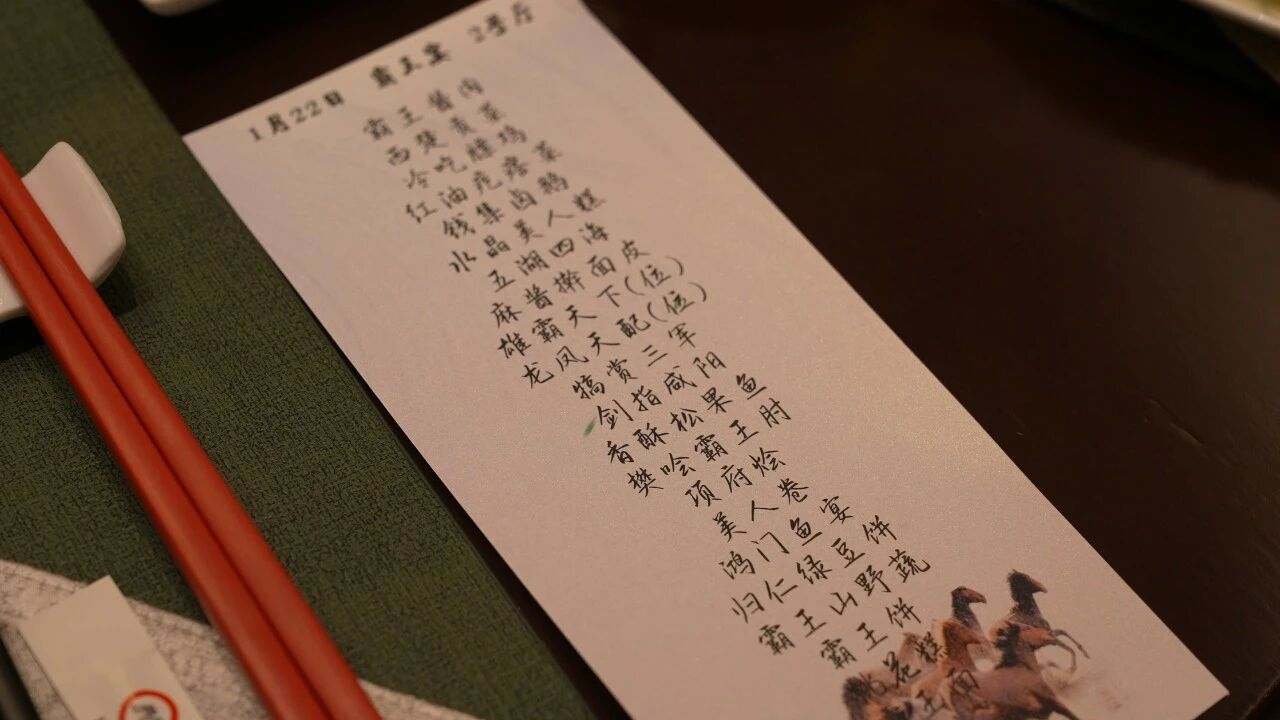 1月22日 霸王宴 2号厅
霸王酱肉
西楚贡菜
冷吃膝鸡
红油疙瘩菜
钱集卤鹅
水晶美人糕
五湖四海
麻酱擀面皮
雄霸天下(位)
龙凤天配(位)
犒赏三军
剑指咸阳
香酥松果鱼
樊哙霸王肘
项府烩
美人卷
鸿门鱼宴
归仁绿豆饼
霸王山野蔬
霸王饼
花糕
面